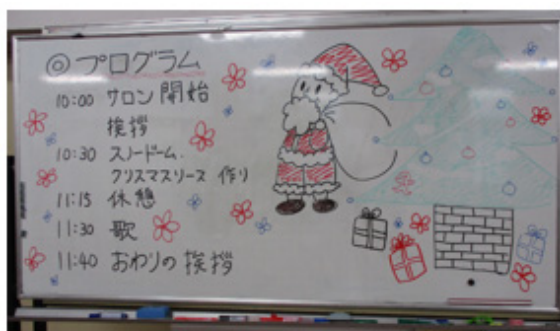 ◎プログラム
10:00 サロン開始
挨拶
10:30 スノードーム.
クリスマスリース 作り
11:15 休憩
11:30 歌
11:40 おわりの挨拶